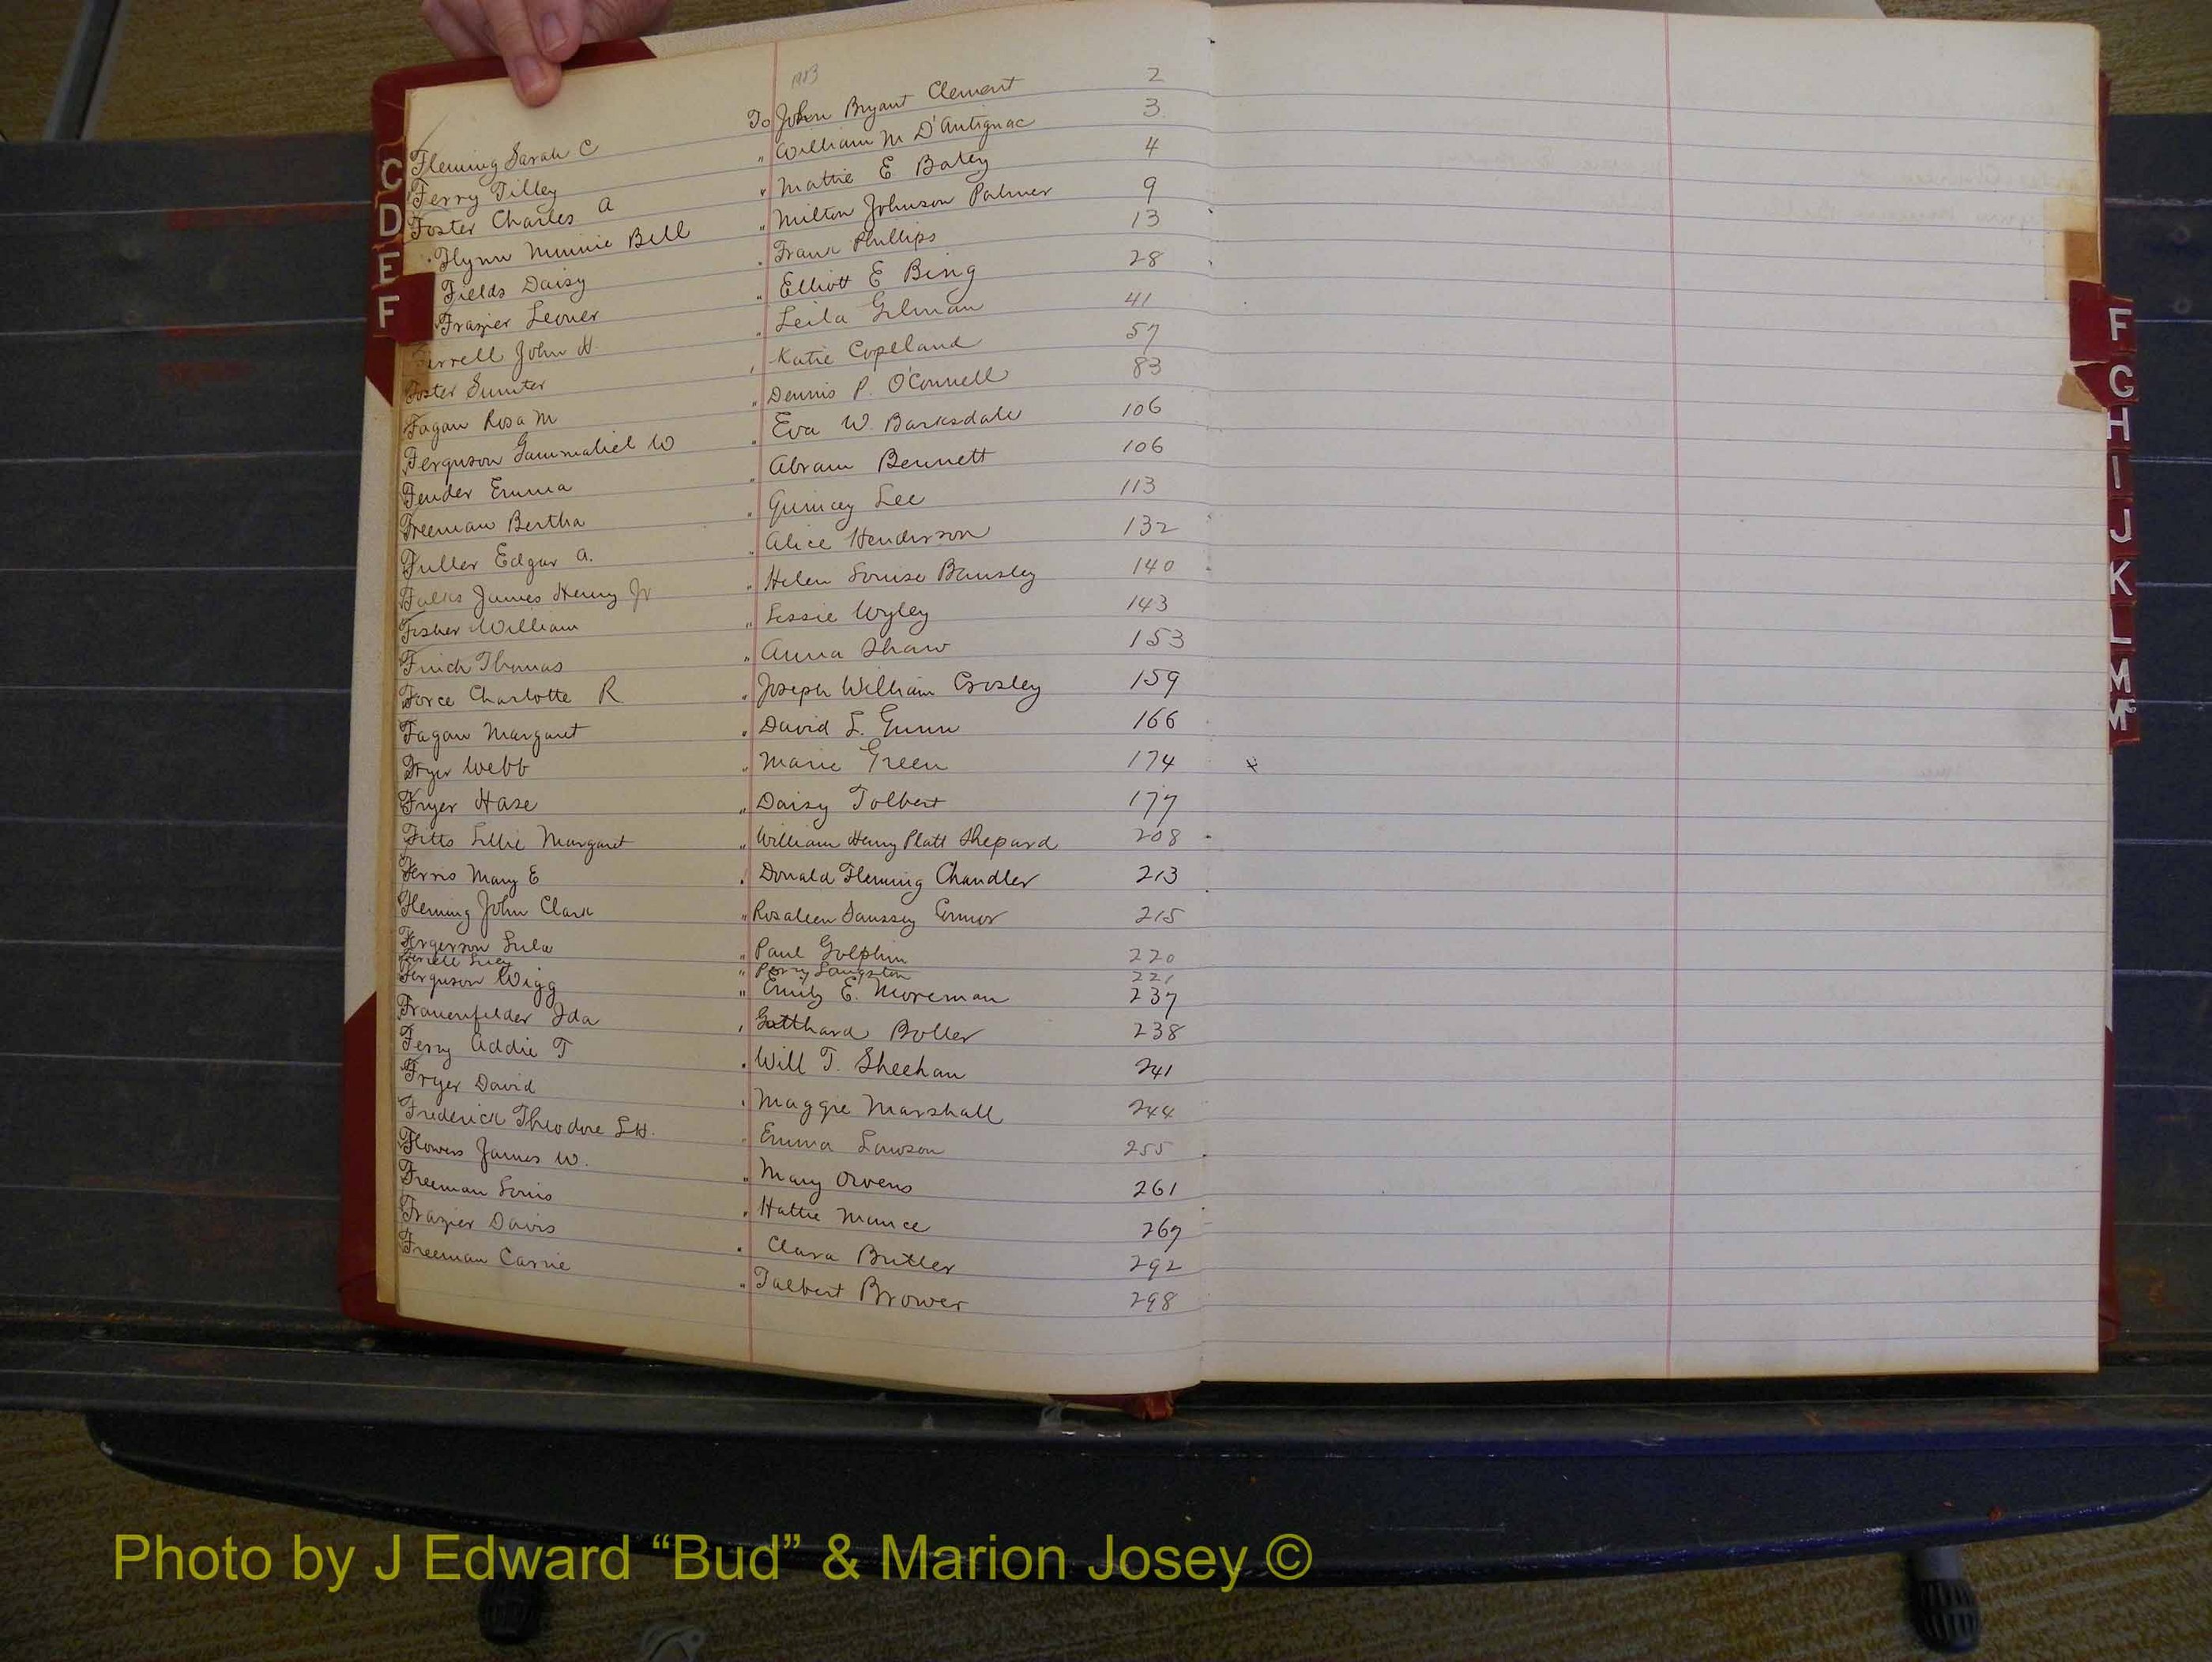 1903
Fleming Sarah C To John Bryant Clement 2
Ferry Tilley " William M D'Antignac 3
Foster Charles A " Mattie E Batey 4
Flynn Minnie Bell " Milton Johnson Palmer 9
Fields Daisy " Frank Phillips 13
Frazier Leoner " Elliott E Bing 28
Ferrell John H. " Leila Gilman 41
Foster Sumter " Katie Copeland 57
Fagan Rosa M " Dennis P. O'Connell 83
Ferguson Gammaliel W " Eva W. Barksdale 106
Fender Emma " Abram Bennett 106
Freeman Bertha " Quincey Lee 113
Fuller Edgar A. " Alice Henderson 132
Falks James Henry Jr " Helen Louise Bansley 140
Fisher William " Lessie Wyley 143
Finch Thomas " Anna Shaw 153
Force Charlotte R " Joseph William Crosley 159
Fagan Margaret " David L. Gunn 166
Fryer Webb " Marie Green 174
Fryer Hase " Daisy Tolbert 177
Fitts Lillie Margaret " William Henry Platt Shepard 208
Ferris Mary E " Donald Fleming Chandler 213
Fleming John Clark " Rosaleen Saussey Connor 215
Fergerson Lula " Paul Golphin 220
Lucy " Perry Langston 221
Ferguson Wigg " Emily E. Moreman 237
Frauenfelder Ida " Gotthard Boller 238
Ferry Addie T " Will T. Sheehan 241
Fryer David " Maggie Marshall 244
Frederick Theodore L.H. " Emma Lawson 255
Flowers James W. " Mary Owens 261
Freeman Louis " Hattie Mance 267
Frazier Davis " Clara Butler 292
Freeman Carrie " Talbert Brower 298
C
D
E
F
F
G
H
I
J
K
L
M
Mc
Photo by J Edward “Bud” & Marion Josey ©